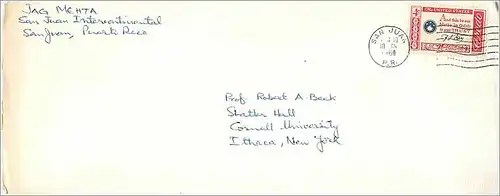 JAG MEHTA
San Juan Intercontinental
San Juan, Puerto Rico
SAN JUAN
P.R.
And this be our
Motto in GOD
is our TRUST
Prof. Robert A. Beck
Statler Hall
Cornell University
Ithaca, New York